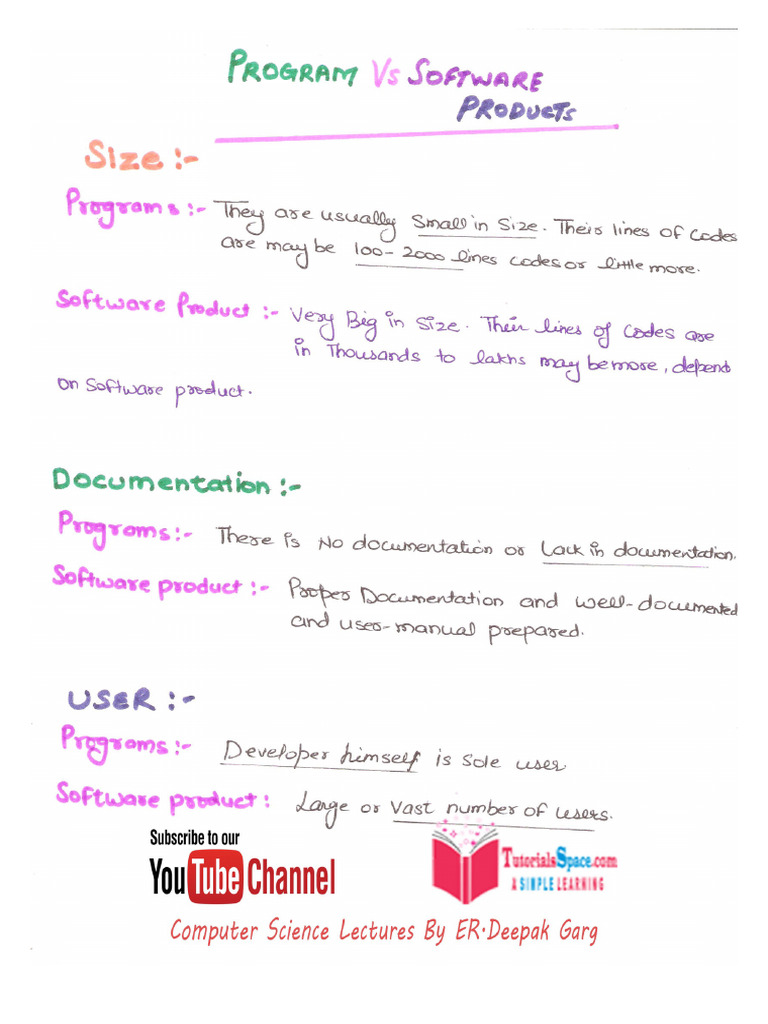 PROGRAM Vs SOFTWARE
PRODUCTS
Size :-
Programs :- They are usually Small in Size. Their lines of codes
are may be 100-2000 lines codes or little more.
Software Product :- Very Big in Size. Their lines of codes are
in Thousands to lakhs may be more, depend
on software product.
Documentation :-
Programs :- There is No documentation or Lack in documentation.
Software product :- Proper Documentation and well-documented
and user-manual prepared.
USER :-
Programs :- Developer himself is sole user
Software product : Large or vast number of users.
Subscribe to our
YouTube Channel
TutorialsSpace.com
A SIMPLE LEARNING
Computer Science Lectures By ER.Deepak Garg